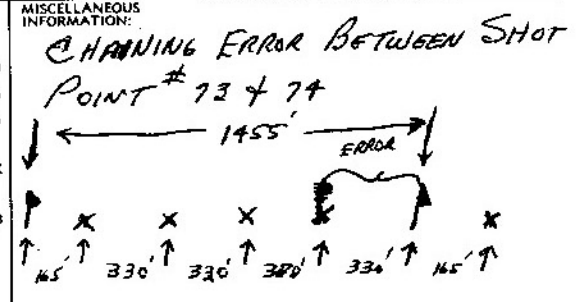 MISCELLANEOUS
INFORMATION:
CHAINING ERROR BETWEEN SHOT
POINT # 73 & 74
1455'
ERROR
165' 330' 330' 380' 330' 165'